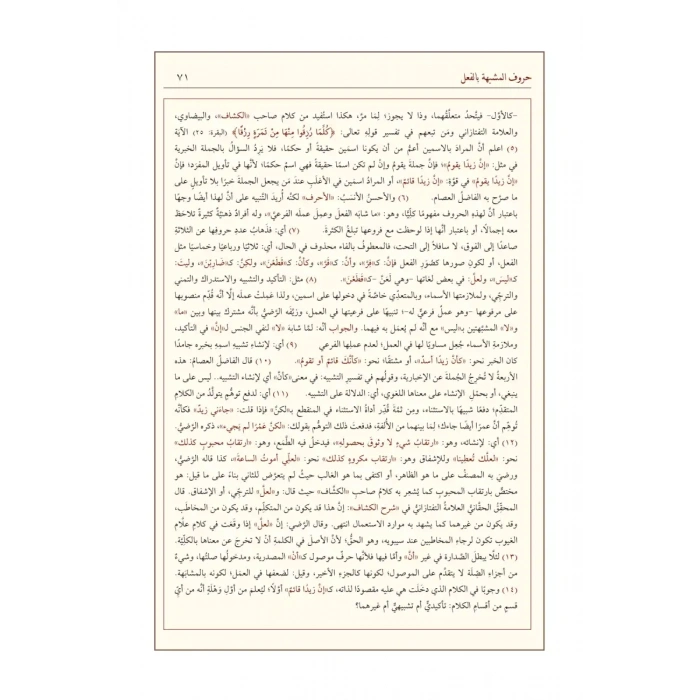 حروف المشبهة بالفعل ٧١
-كالأوّل- فيتّحدُ متعلّقُهما، وذا لا يجوز؛ لِمَا مر، هكذا استُفيد من كلام صاحبِ «الكشاف»، والبيضاوي،
والعلامة التفتازاني ومَن تبعهم في تفسير قولِهِ تعالى: ﴿كُلَّمَا رُزِقُوا مِنْهَا مِنْ ثَمَرَةٍ رِزْقًا﴾ (البقرة: ٢٥) الآيَة
(٥) اعلم أنَّ المرادَ بالاسمين أعمُّ من أن يكونا اسمَين حقيقةً أو حكمًا، فلا يَرِدُ السؤالُ بالجملة الخبرية
في مثل: «إنَّ زيدًا يقومُ»؛ فإنَّ جملةَ يقومُ وإنْ لم تكن اسمًا حقيقةً فهي اسمٌ حكمًا؛ لأنّها في تأويل المفرَد؛ فإنَّ
«إنَّ زيدًا يقومُ» في قوّة: «إنَّ زيدًا قائمٌ»، أو المرادُ اسمَين في الأغلَبِ عندَ مَن يجعل الجملةَ خبرًا بلا تأويلٍ على
ما صرّح به الفاضلُ العصام. (٦) والأحسنُ الأنسَبُ: «الأحرف» لكنّه أُريدَ التّنبيه على أنَّ لهذا أيضًا وجهًا
باعتبار أنَّ لهذِهِ الحروف مفهومًا كلّيًّا، وهو: «ما شابَه الفعلَ وعمِلَ عملَه الفرعيَّ»، وله أفرادٌ ذهنيّةٌ كثيرةٌ تلاحَظ
معه إجمالًا، أو باعتبار أنّها إذا لوحظت مع فروعها تبلغُ الكثرةَ. (٧) أي: فذَهابُ عددِ حروفِها عن الثلاثةِ
صاعدًا إلى الفوق، لا سافلًا إلى التحت، فالمعطوفُ بالفاء محذوف في الحال، أي: ثلاثيًا ورباعيًا وخماسيًا مثل
الفعل، أو لكونِ صورها كصُوَرِ الفعل فإنَّ: كـ«فِرَّ»، وأنَّ: كـ«فَرَّ»، وكأنَّ: كـ«قَطَعْنَ»، ولكنَّ: كـ«ضَارِبْنَ»، وليتَ:
كـ«ليسَ»، ولعلَّ: في بعض لغاتها -وهي لَعَنَّ- كـ«قَطَعْنَ». (٨) مثل: التأكيد والتشبيه والاستدراك والتمني
والترجّي، ولملازمتها الأسماء، وبالمتعدّي خاصّةً في دخولها على اسمين، ولذا عَمِلَتْ عملَه إلَّا أنّه قُدِّم منصوبها
على مرفوعها -وهو عملٌ فرعيٌّ له-؛ تنبيهًا على فرعيتها في العمل، وزيّفَه الرَّضيُّ بأنَّه مشترك بينها وبين «ما»
و«لا» المشبّهتين بـ«ليس» مع أنّه لم يُعمَل به فيهما. والجواب أنّه: لَمَّا شابَهَ «لا» لنفي الجنس لـ«إنَّ» في التأكيد،
وملازمةِ الأسماء جُعِلَ مساويًا لها في العمل؛ لعدم عملِها الفرعي (٩) أي: لإنشاء تشبيهِ اسمِهِ بخبره جامدًا
كان الخبر نحو: «كأنَّ زيدًا أسدٌ»، أو مشتقًّا؛ نحو: «كأنّك قائمٌ أو تقومُ». (١٠) قال الفاضلُ العصامُ: هذه
الأربعةُ لا تُخرِجُ الجُملةَ عن الإخبارية، وقولُهم في تفسير التشبيه: في معنى «كأنَّ» أي لإنشاء التشبيه.. ليس على ما
ينبغي، أو بحملِ الإنشاء على معناها اللغوي، أي: الدلالة على التشبيه. (١١) أي: لدفعِ توهمٍ يتولَّدُ من الكلامِ
المتقدِّم؛ دفعًا شبيهًا بالاستثناء، ومن ثَمّةَ قُدِّرَ أداةُ الاستثناء في المنقطع بـ«لكنَّ» فإذا قلتَ: «جاءَني زيدٌ» فكأنّه
تُوُهّم أنَّ عمرًا أيضًا جاءَك؛ لِمَا بينهما من الأُلفةِ، فدفعتَ ذلك التوهُّم بقولك: «لكنَّ عَمْرًا لم يَجِيء»، ذكره الرَّضيُّ.
(١٢) أي: لإنشائه، وهو: «ارتقابُ شيءٍ لا وثوقَ بحصوله»، فيدخلُ فيه الطّمع، وهو: «ارتقابُ محبوبٍ كذلك»
نحو: «لعلّك تُعطينا» وللإشفاق وهو: «ارتقابُ مكروهٍ كذلك» نحو: «لعلّي أموتُ الساعةَ»، كذا قاله الرَّضيُّ،
ورضي به المصنفُ على ما هو الظاهر، أو اكتفى بما هو الغالب حيثُ لم يتعرّض للثاني بناءً على ما قيل: هو
مختصٌّ بارتقاب المحبوبِ كما يُشعِر به كلامُ صاحبِ «الكشّاف» حيث قال: و«لعلَّ» للترجّي، أو الإشفاق. قال
المحقّقُ الحقّانيُّ العلامةُ التفتازانيُّ في «شرح الكشاف»: إنَّ هذا قد يكون من المتكلّم، وقد يكون من المخاطَب،
وقد يكون من غيرهما كما يشهد به موارد الاستعمال انتهى. وقال الرَّضيّ: إنَّ «لعلَّ» إذا وقعَت في كلام علّام
الغيوب تكون لرجاءِ المخاطبين عند سيبويه، وهو الحقُّ؛ لأنَّ الأصلَ في الكلمةِ أنْ لا تخرجَ عن معناها بالكليَّة.
(١٣) لئلّا يبطلَ الصَّدارة في غير «أنَّ» وأمّا فيها فلأنّها حرفٌ موصول كـ«أنْ» المصدرية، ومدخولُها صلتُها، وشيءٌ
من أجزاءِ الصِّلة لا يتقدّم على الموصول؛ لكونها كالجزءِ الأخير، وقيل: لضعفِها في العمل؛ لكونه بالمشابهة.
(١٤) وجوبًا في الكلام الذي دخلَت هي عليه مقصودًا لذاته، كـ«إنَّ زيدًا قائمٌ» أوّلًا؛ ليُعلمَ من أوّلِ وَهْلَةٍ أنّه من أيِّ
قسمٍ من أقسام الكلام: تأكيديٌّ أم تشبيهيٌّ أم غيرهما؟